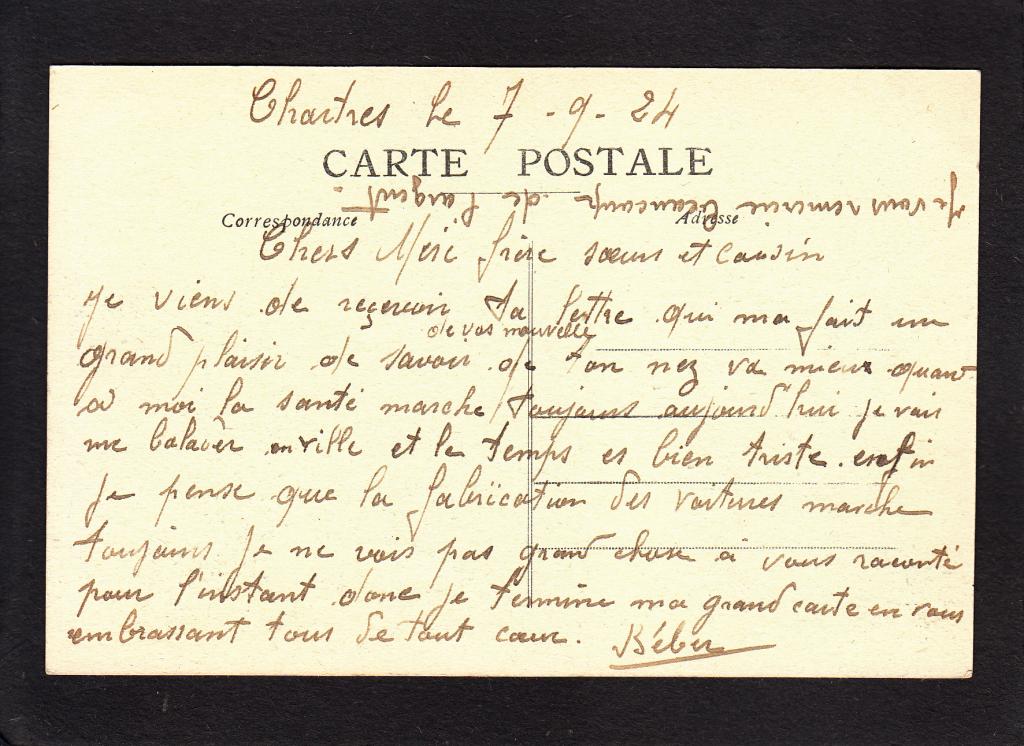 Chartres le 7 - 9 - 24
CARTE POSTALE
Je vous remercie beaucoup de l'argent.
Correspondance
Adresse
Chers Mère frère sœurs et cousin
Je viens de reçevoir ta lettre qui ma fait un
de vos nouvelle
grand plaisir de savoir de ton nez va mieux quant
a moi la santé marche toujours aujourd'hui je vais
me balader en ville et le temps es bien triste. enfin
je pense que la fabrication des voitures marche
toujours je ne vois pas grand chose a vous raconté
pour l'instant donc je termine ma grand carte en vous
embrassant tous de tout cœur. Béber